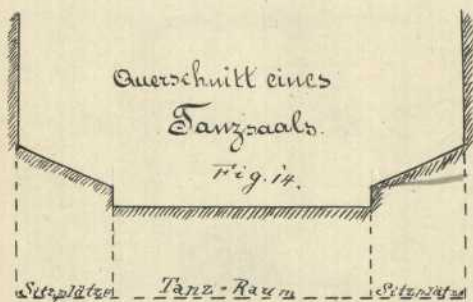 Querschnitt eines
Tanzsaals.
Fig. 14.
Sitzplätze Tanz-Raum Sitzplätze